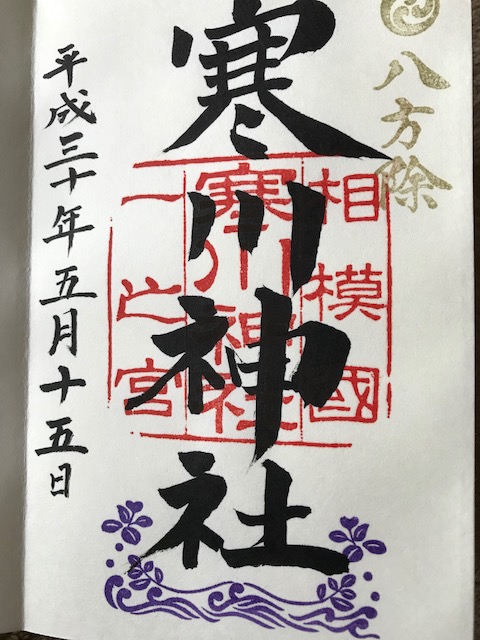 八方除
寒川神社
相模國
寒川神社
一之宮
平成三十年五月十五日